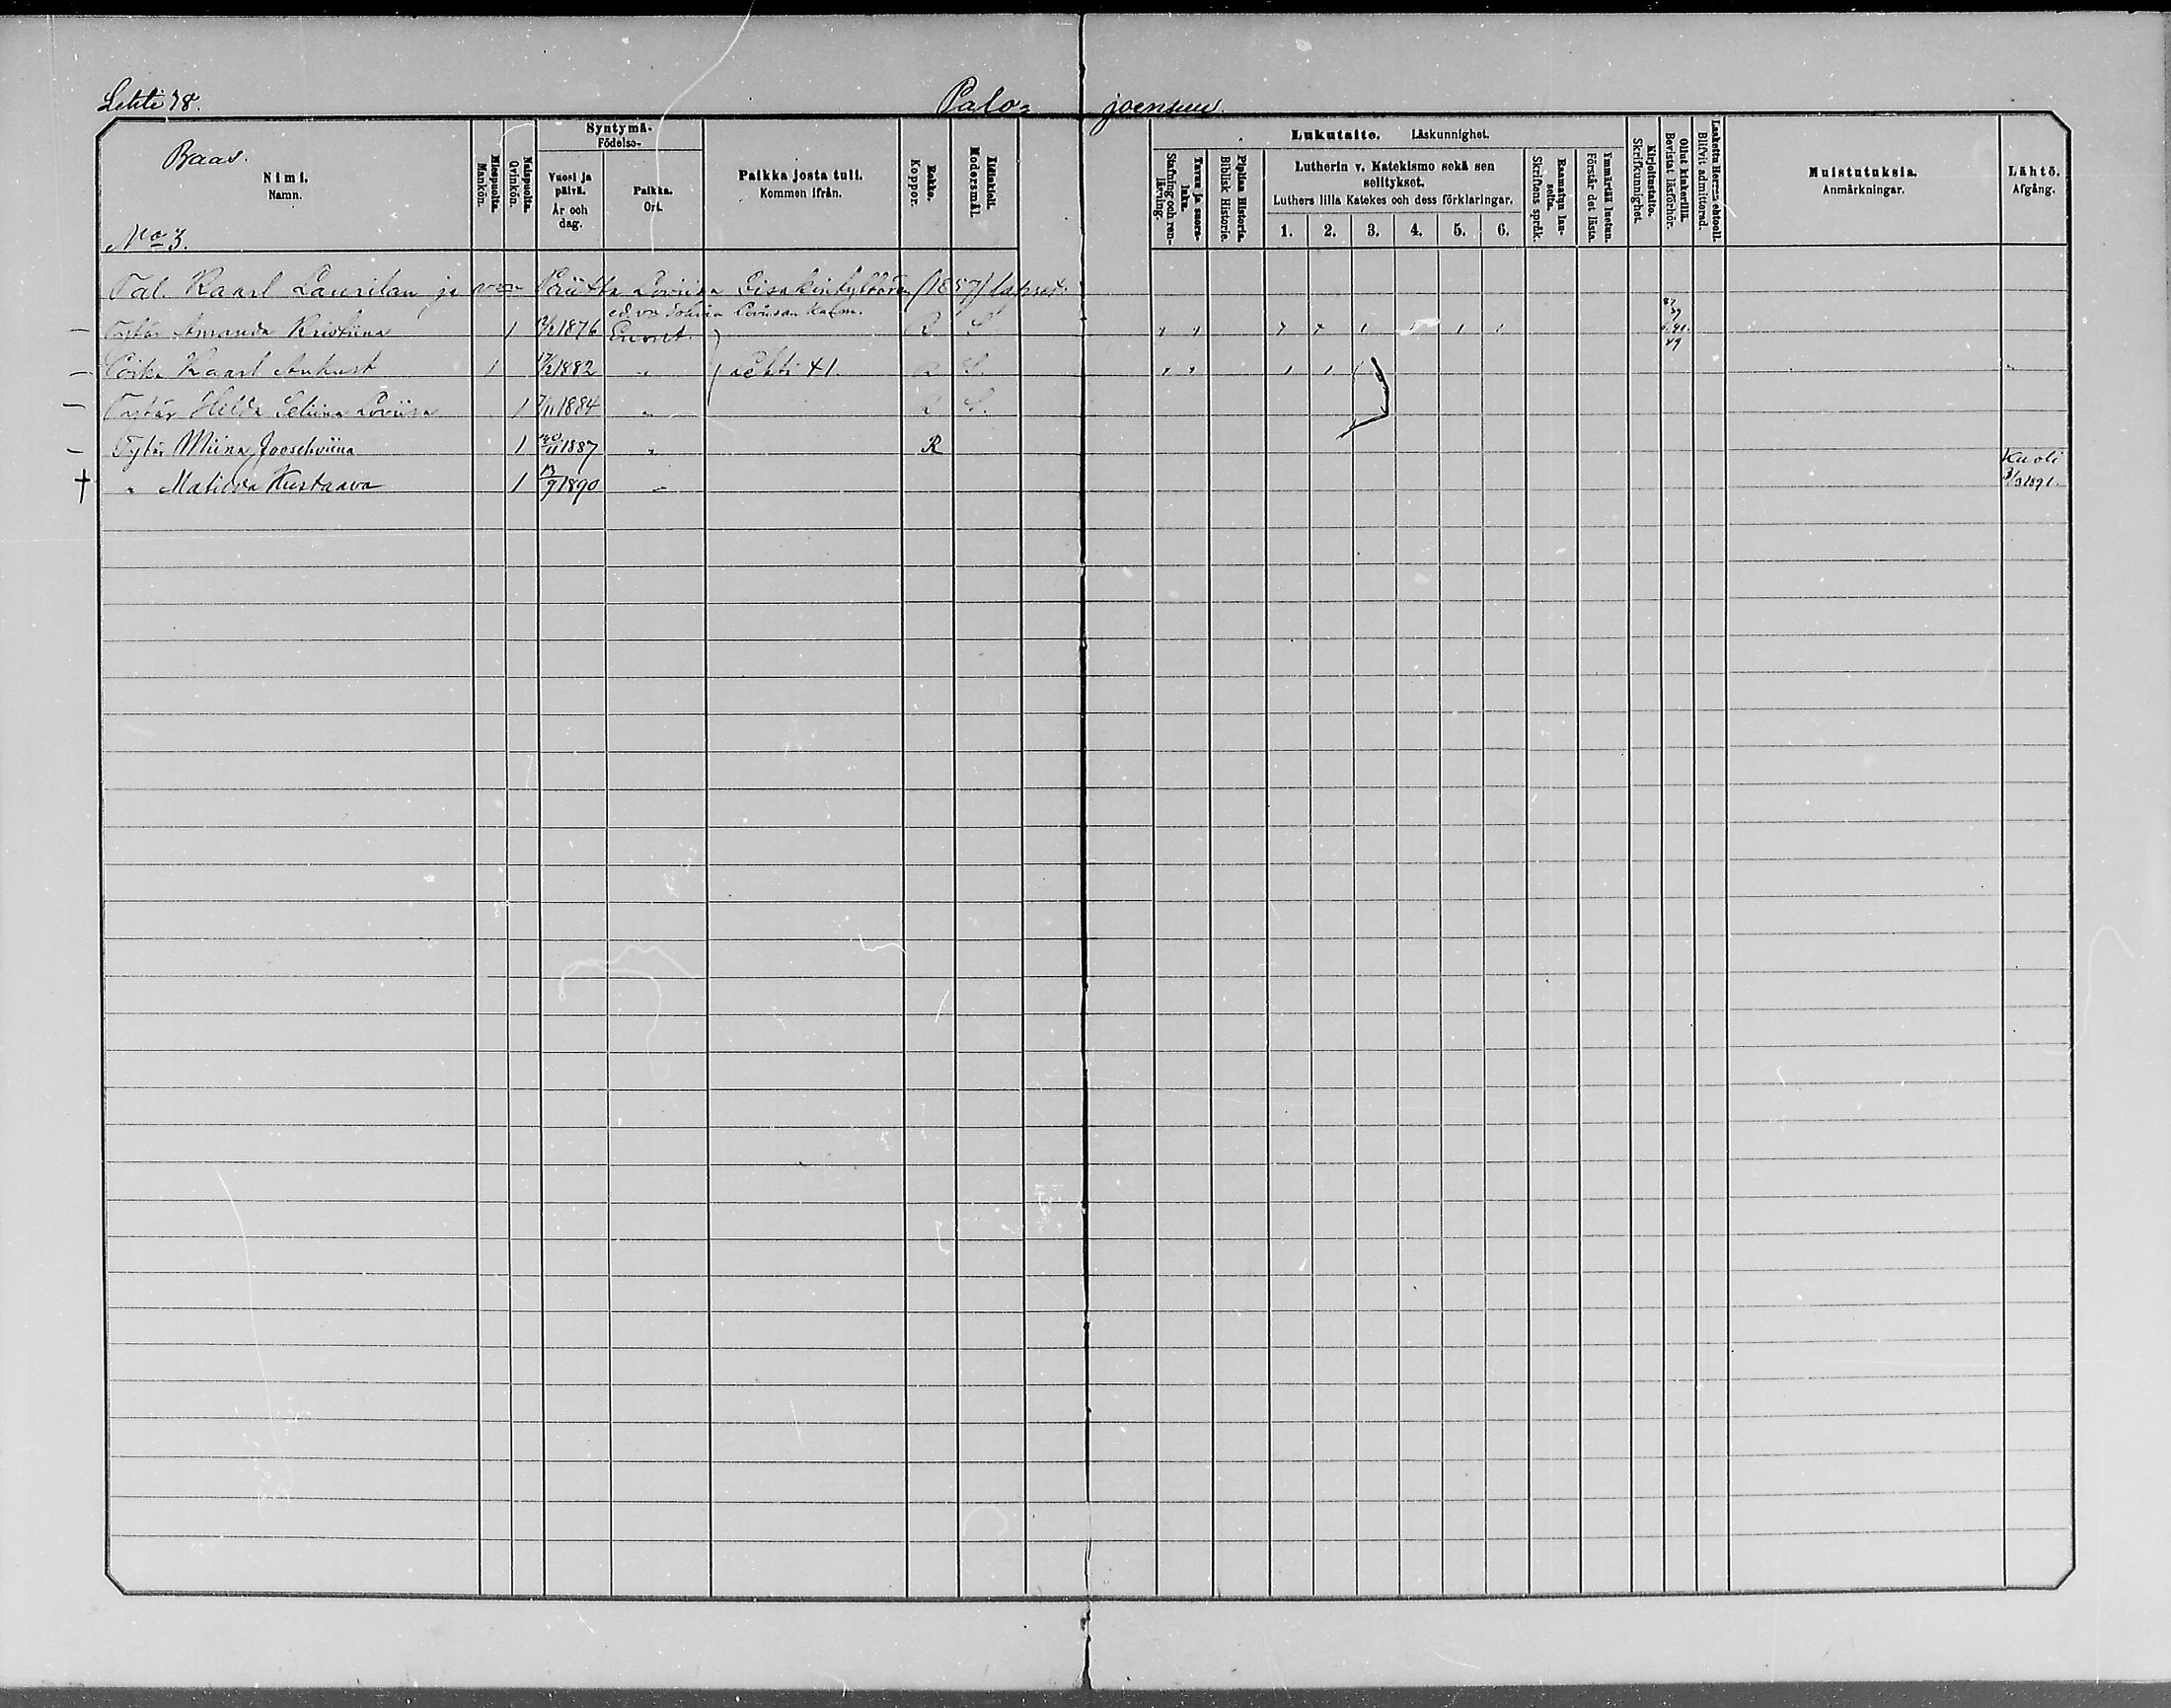 Lehti 78. Palo= joensuu.
Baas.
Nimi.
Namn.
No 3.
Miespuolia.
Mankön.
Naispuolia.
Qvinkön.
Syntymä-
Födelse-
Vuosi ja päivä.
År och dag.
Paikka.
Ort.
Paikka josta tuli.
Kommen ifrån.
Rokko.
Koppor.
Äidinkieli.
Modersmål.
Tavaa ja suora-luku.
Stafning och ren-läsning.
Piplian Historia.
Biblisk Historie.
Lukutaito. Läskunnighet.
Lutherin v. Katekismo sekä sen
selitykset.
Luthers lilla Katekes och dess förklaringar.
1. 2. 3. 4. 5. 6.
Raamatun lau-seita.
Skriftens språk.
Ymmärtää luetun.
Förstår det lästa.
Kirjoitustaito.
Skrifkunnighet.
Ollut kinkerillä.
Bevistat läsförhör.
Laskettu Herran ehtooll.
Blifvit admitterad.
Muistutuksia.
Anmärkningar.
Lähtö.
Afgång.
Tal. Kaarl Laurilan ja Loviisa (1857) lapset.
Tytär Amanda Kristiina 1 1876 Enont. R S
Poika Kaarl Aukust 1 1882 " Lehti 41. R S.
Tytär Hilda Loviisa 1 1884 " R S.
Tytär Miina Joosehviina 1 1887 " R
† " Matilda Kustaava 1 1890 " Kuoli
1891.